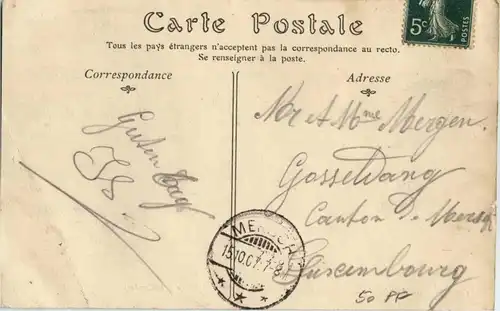 Carte Postale
Tous les pays étrangers n'acceptent pas la correspondance au recto.
Se renseigner à la poste.
Correspondance
Adresse
5c
POSTES
Guten Tag
Mr et Mme Mergen.
Gosseldang
Canton de Mersch
Luxembourg
MERSCH
15.10.07. 7-8
50 PF